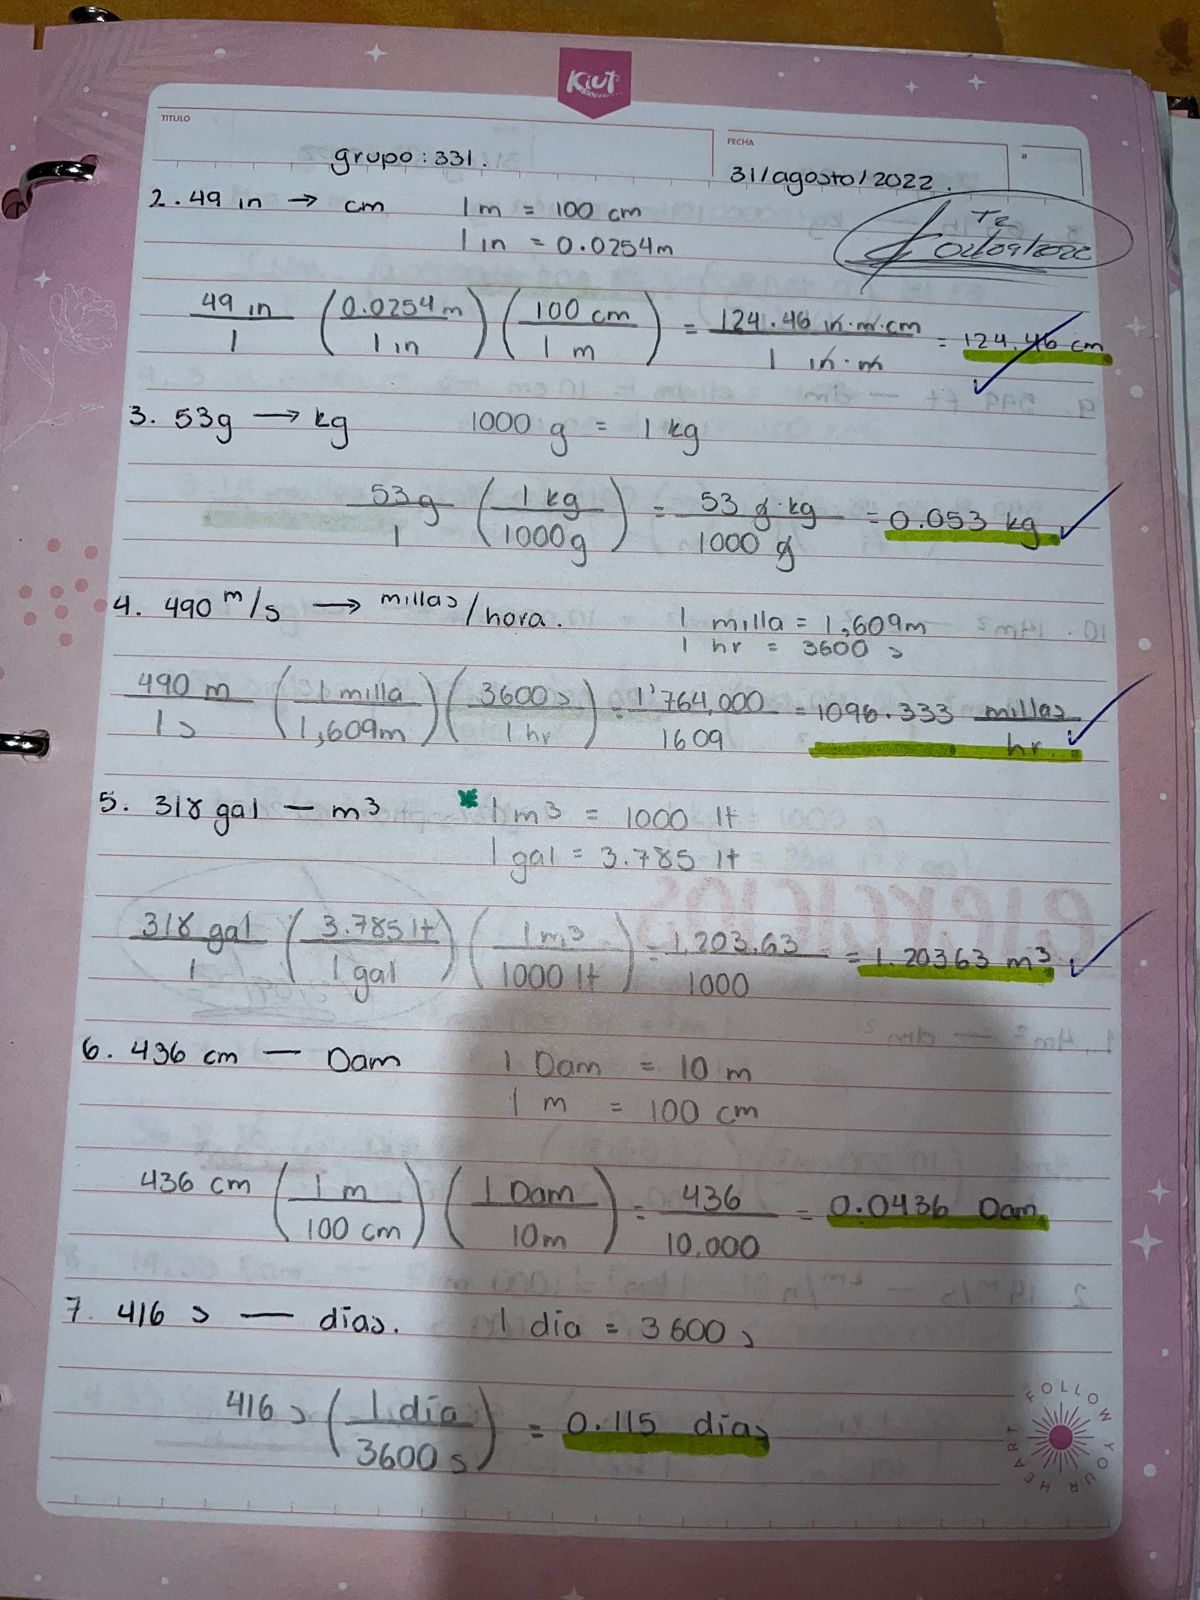 Kiut
TITULO
FECHA
grupo: 331.
31/agosto/2022.
2. 49 in → cm 1 m = 100 cm
1 in = 0.0254m
T2
02/09/2022
49 in / 1 (0.0254 m / 1 in) (100 cm / 1 m) = 124.46 in·m·cm / 1 in·m = 124.46 cm
3. 53g → kg 1000 g = 1 kg
53g / 1 (1 kg / 1000g) = 53 g·kg / 1000 g = 0.053 kg
4. 490 m/s → millas/hora. 1 milla = 1,609m
1 hr = 3600 s
490 m / 1s (1 milla / 1,609m) (3600s / 1 hr) = 1'764,000 / 1609 = 1096.333 millas / hr.
5. 318 gal — m3 * 1 m3 = 1000 lt
1 gal = 3.785 lt
318 gal / 1 (3.785 lt / 1 gal) (1 m3 / 1000 lt) = 1,203.63 / 1000 = 1.20363 m3
6. 436 cm — Dam 1 Dam = 10 m
1 m = 100 cm
436 cm (1 m / 100 cm) (1 Dam / 10m) = 436 / 10,000 = 0.0436 Dam
7. 416 s — días. 1 día = 3600 s
416 s (1 día / 3600 s) = 0.115 días
FOLLOW YOUR HEART